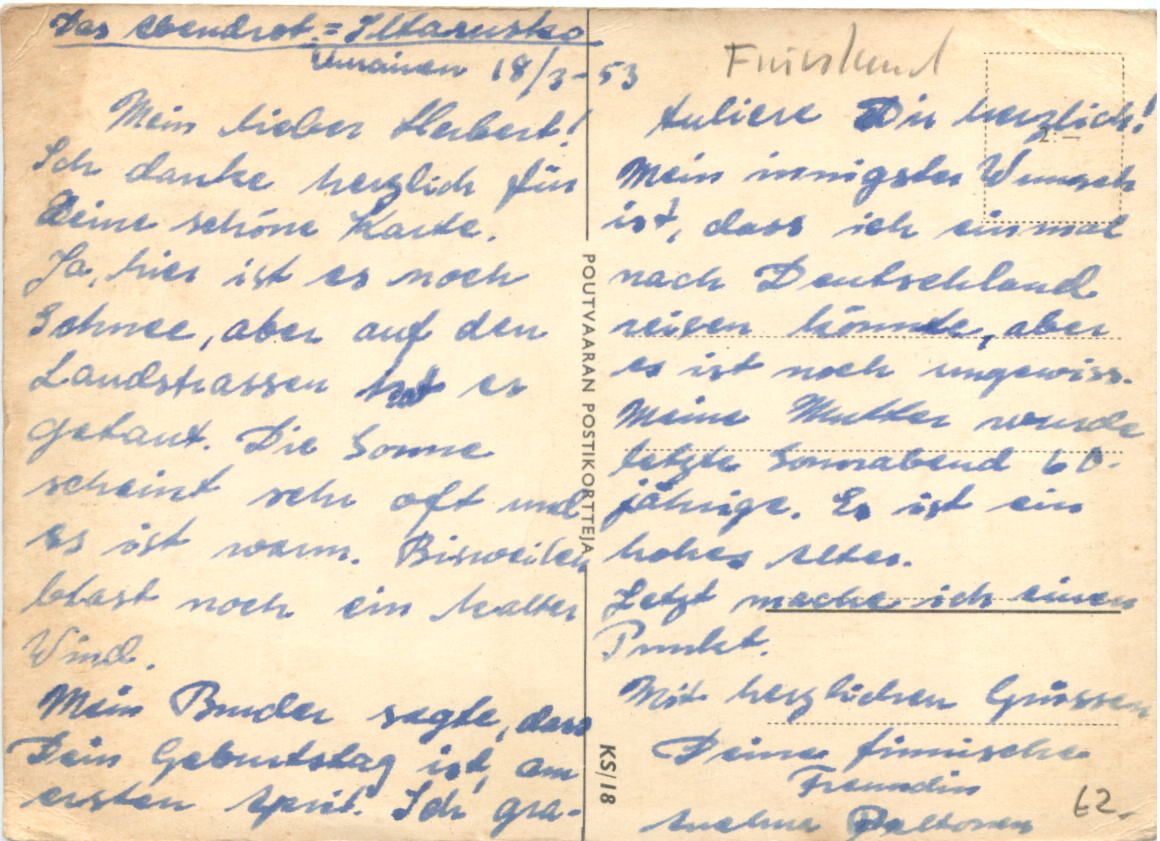 Das Abendrot = Iltarusko
18/3-53
Mein lieber Herbert!
Ich danke herzlich für
Deine schöne Karte.
Ja, hier ist es noch
Schnee, aber auf den
Landstrassen hat es
getaut. Die Sonne
scheint sehr oft und
es ist warm. Bisweilen
blast noch ein kalter
Wind.
Mein Bruder sagte, dass
Dein Geburtstag ist am
ersten April. Ich gra-
POUTVAARAN POSTIKORTTEJA
KS/18
2:-
tuliere Dir herzlich!
Mein innigster Wunsch
ist, dass ich einmal
nach Deutschland
reisen könnte, aber
es ist noch ungewiss.
Meine Mutter wurde
letzte Sonnabend 60-
jährige. Es ist ein
hohes Alter.
Jetzt mache ich einen
Punkt.
Mit herzlichen Grüssen
Deine finnische
Freundin
Peltonen
62.